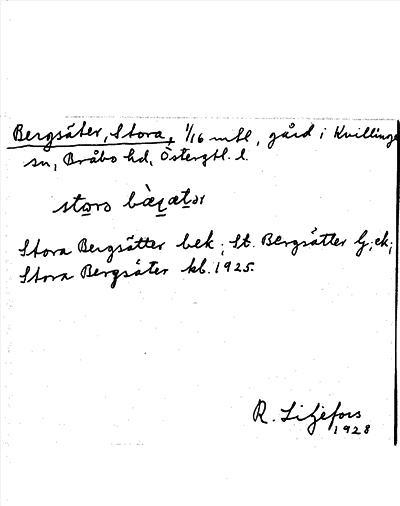 Bergsäter, Stora, 1/16 mtl, gård i Kvillinge
sn, Bråbo hd, Östergtl. l.
Stora Bergsätter bek; St. Bergsätter Gek;
Stora Bergsäter kb. 1925.
R. Liljefors
1928